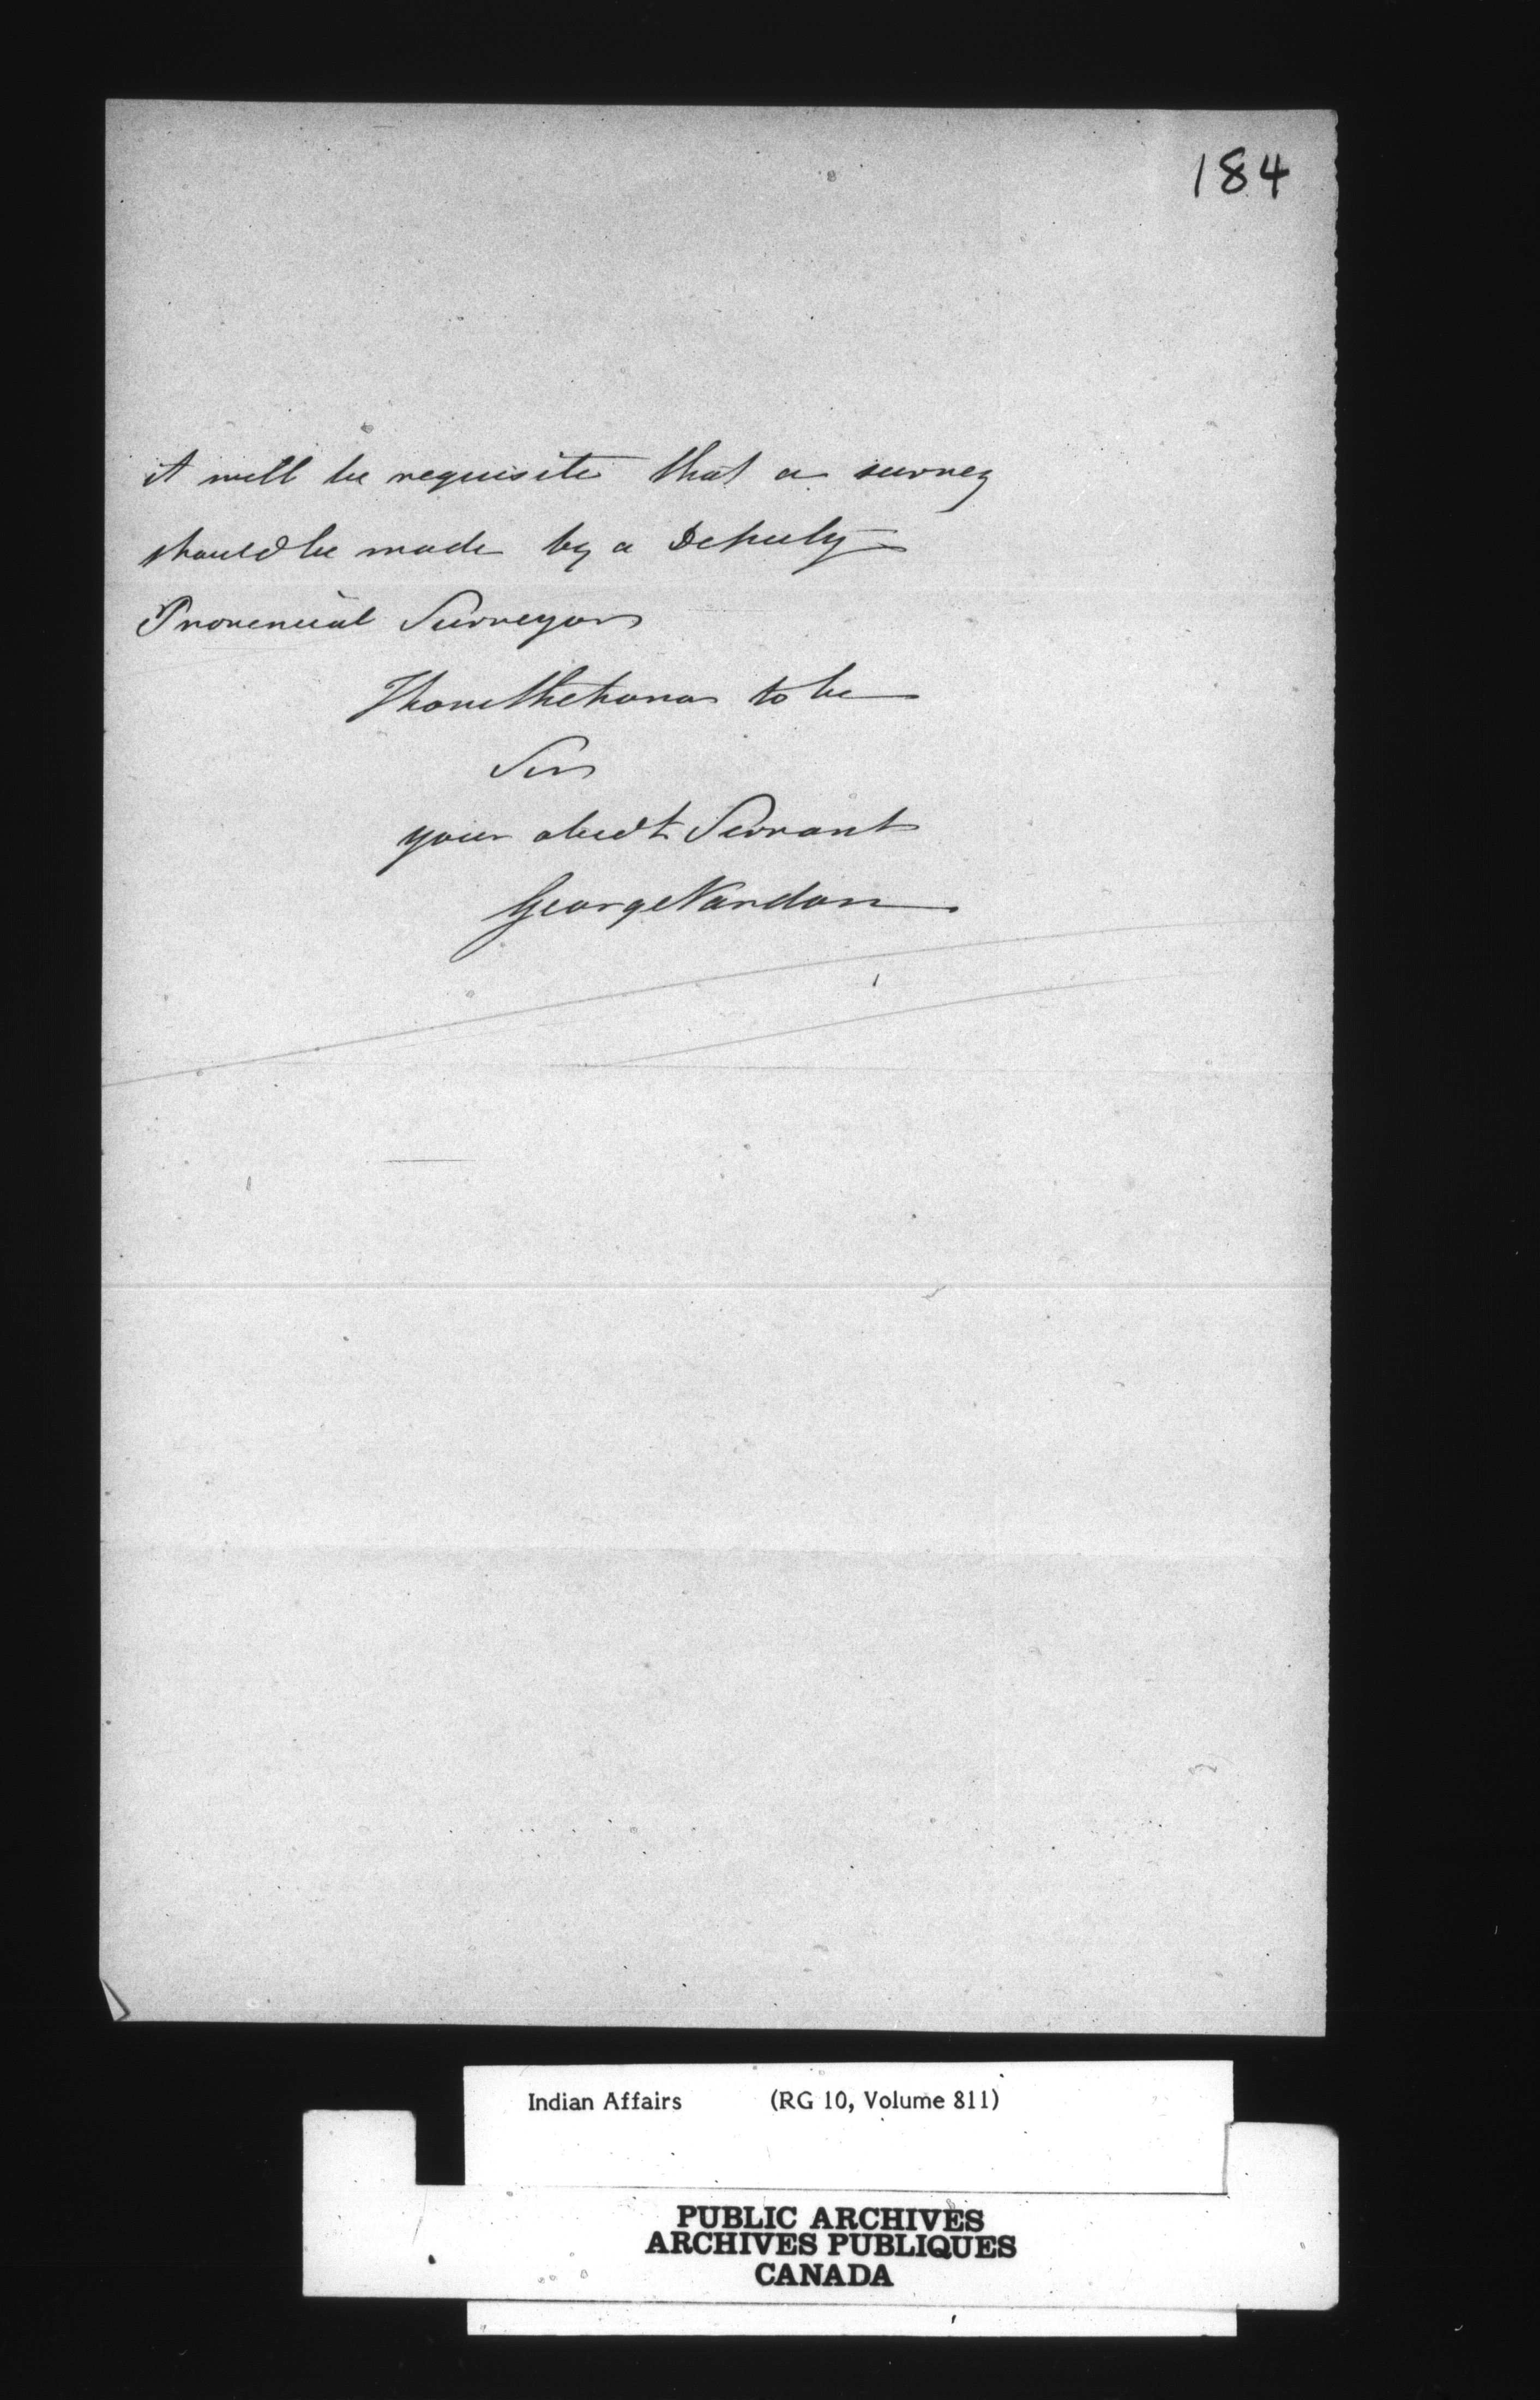 184
it will be requisite that a survey
should be made by a Deputy
Provencial Surveyor
I have the honor to be
Sir
your obedt Servant
George Vardon
Indian Affairs (RG 10, Volume 811)
PUBLIC ARCHIVES
ARCHIVES PUBLIQUES
CANADA